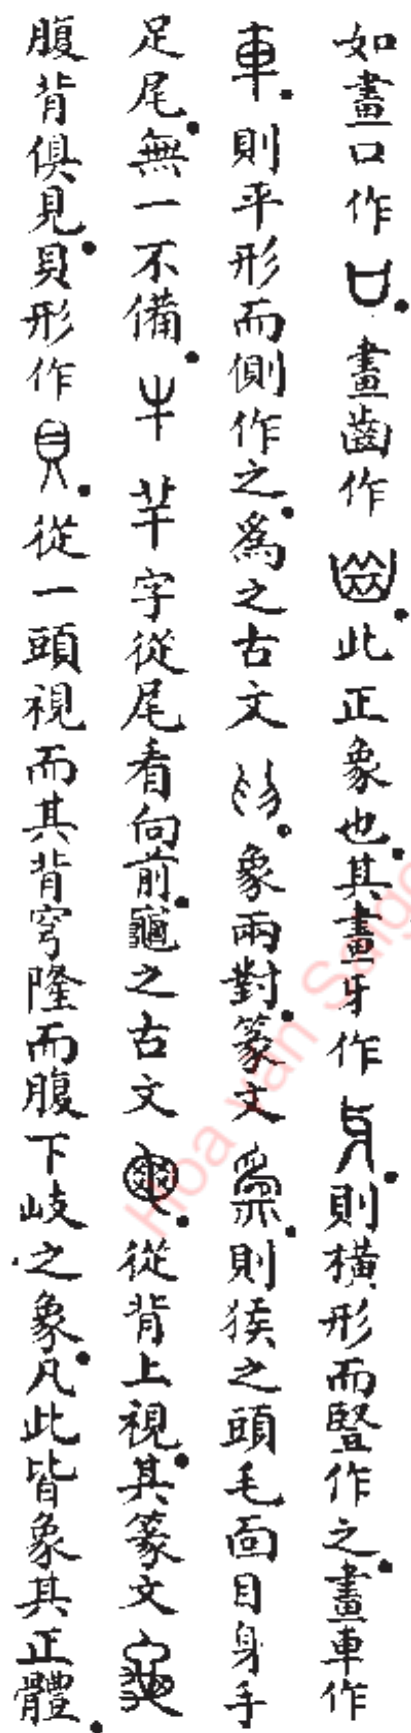 如畫口作𠙵。畫齒作𦥒。此正象也。其畫牙作⽛。則橫形而豎作之。畫車作
車。則平形而側作之。爲之古文𦥮。象兩對。篆文爲。則猴之頭毛面目身手
足尾。無一不備。牛羊字從尾看向前。龜之古文𠁴。從背上視。其篆文龜
腹背俱見。貝形作貝。從一頭視而其背穹隆而腹下岐之象。凡此皆象其正體。
Hoa văn Saigo